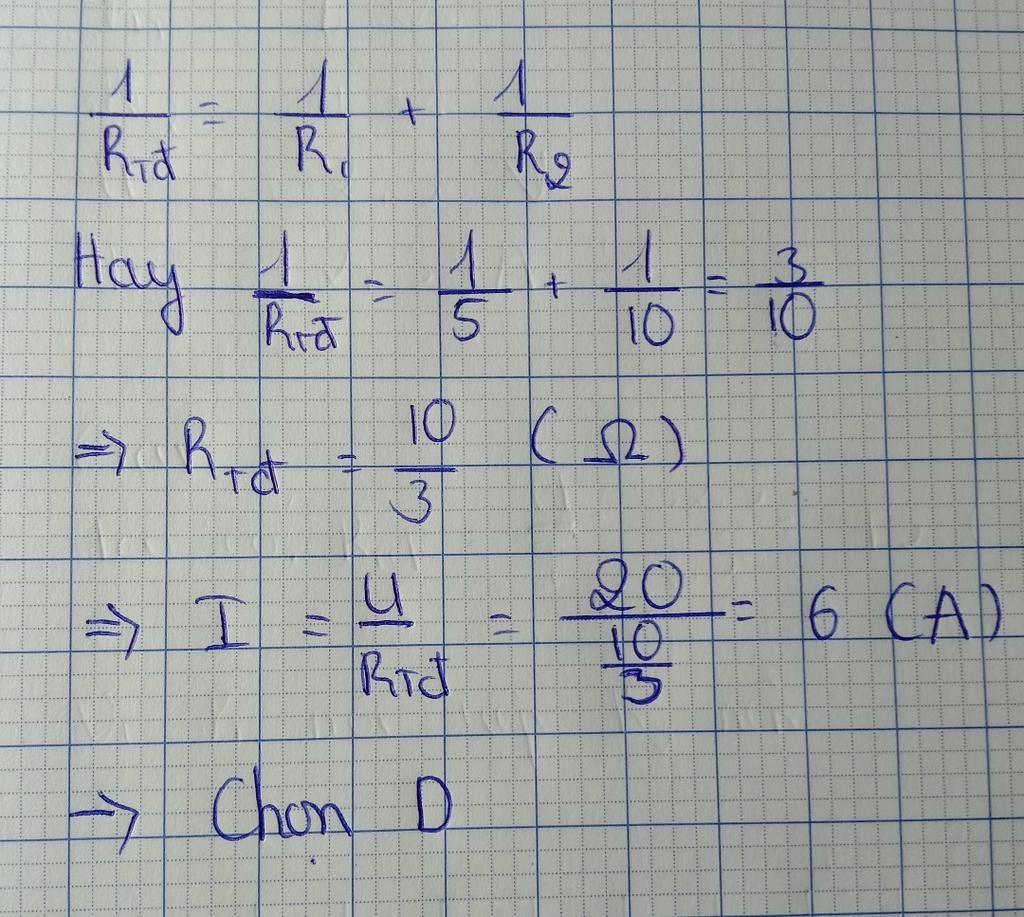 1/R_Tđ = 1/R₁ + 1/R₂
Hay 1/R_Tđ = 1/5 + 1/10 = 3/10
=> R_Tđ = 10/3 (Ω)
=> I = U/R_Tđ = 20/(10/3) = 6 (A)
-> Chọn D